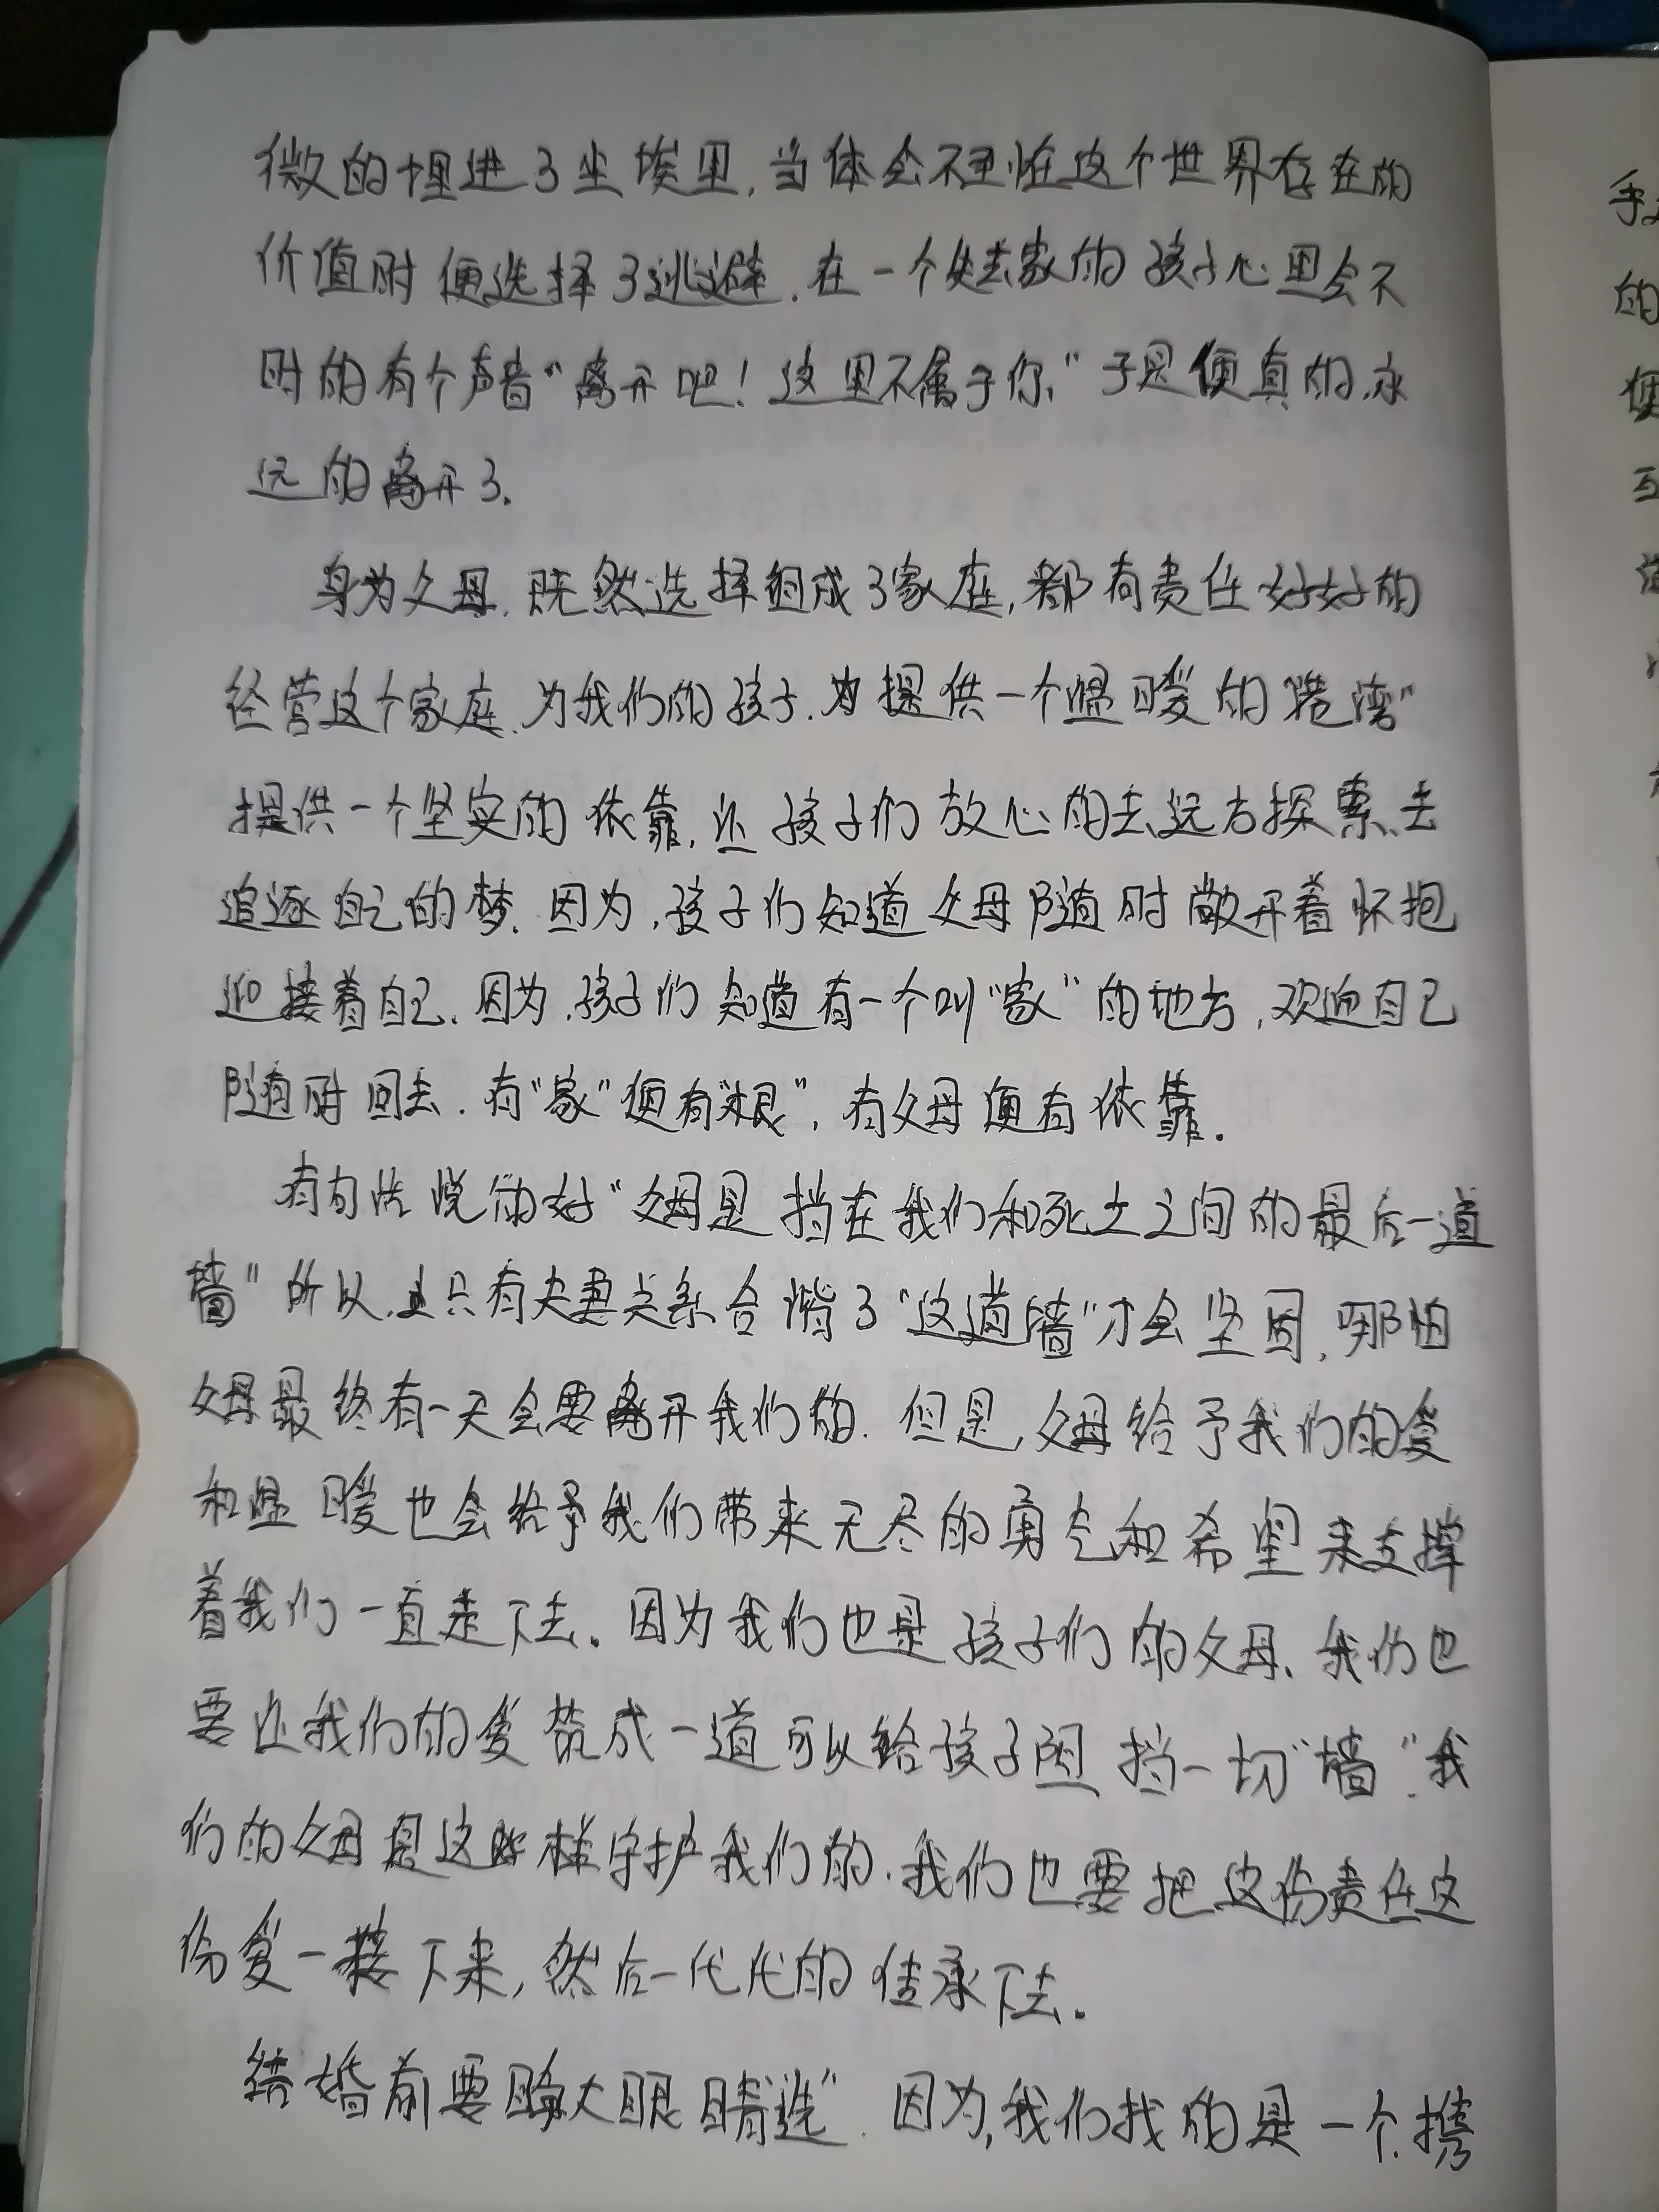 微的埋进了尘埃里，当体会不到在这个世界存在的
价值时便选择了逃避．在一个失去家的孩子心里会不
时的有个声音“离开吧！这里不属于你，”于是便真的永
远的离开了．
身为父母．既然选择组成了家庭，都有责任好好的
经营这个家庭．为我们的孩子．提供一个温暖的“港湾”
提供一个坚实的依靠，让孩子们放心的去远方探索、去
追逐自己的梦．因为，孩子们知道父母随时敞开着怀抱
迎接着自己．因为，孩子们知道有一个叫“家”的地方，欢迎自己
随时回去．有“家”便有“根”，有父母便有依靠．
有句话说的好“父母是挡在我们和死亡之间的最后一道
墙”所以，只有夫妻关系合谐了“这道墙”才会坚固，哪怕
父母最终有一天会要离开我们的．但是，父母给予我们的爱
和温暖也会给予我们带来无尽的勇气和希望来支撑
着我们一直走下去．因为我们也是孩子们的父母．我们也
要让我们的爱筑成一道可以给孩子阻挡一切“墙”．我
们的父母是这样守护我们的．我们也要把这份责任这
份爱一接下来，然后一代代的传承下去．
结婚前要睁大眼睛“选”．因为，我们找的是一个携
手
的
便
互